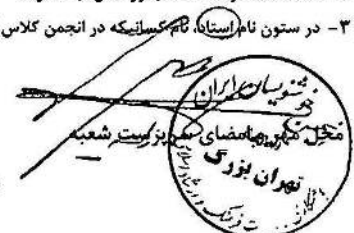 ۳- در ستون نام استاد، نام کسانیکه در انجمن کلاس
محل مهر و امضای سرپرست شعبه
خوشنویسان ایران
تهران بزرگ